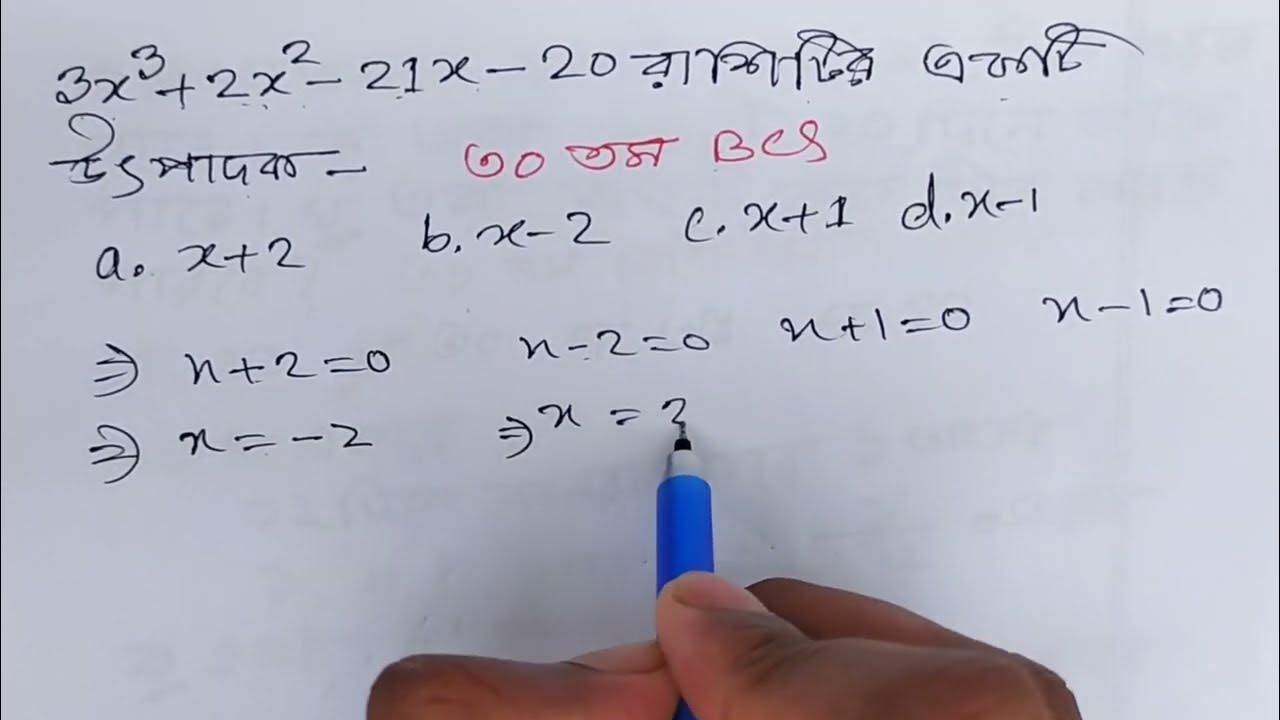 3x³+2x²-21x-20 রাশিটির একটি
উৎপাদক- ৩০ তম BCS
a. x+2 b. x-2 c. x+1 d. x-1
⇒ x+2=0 x-2=0 x+1=0 x-1=0
⇒ x=-2 ⇒ x=2